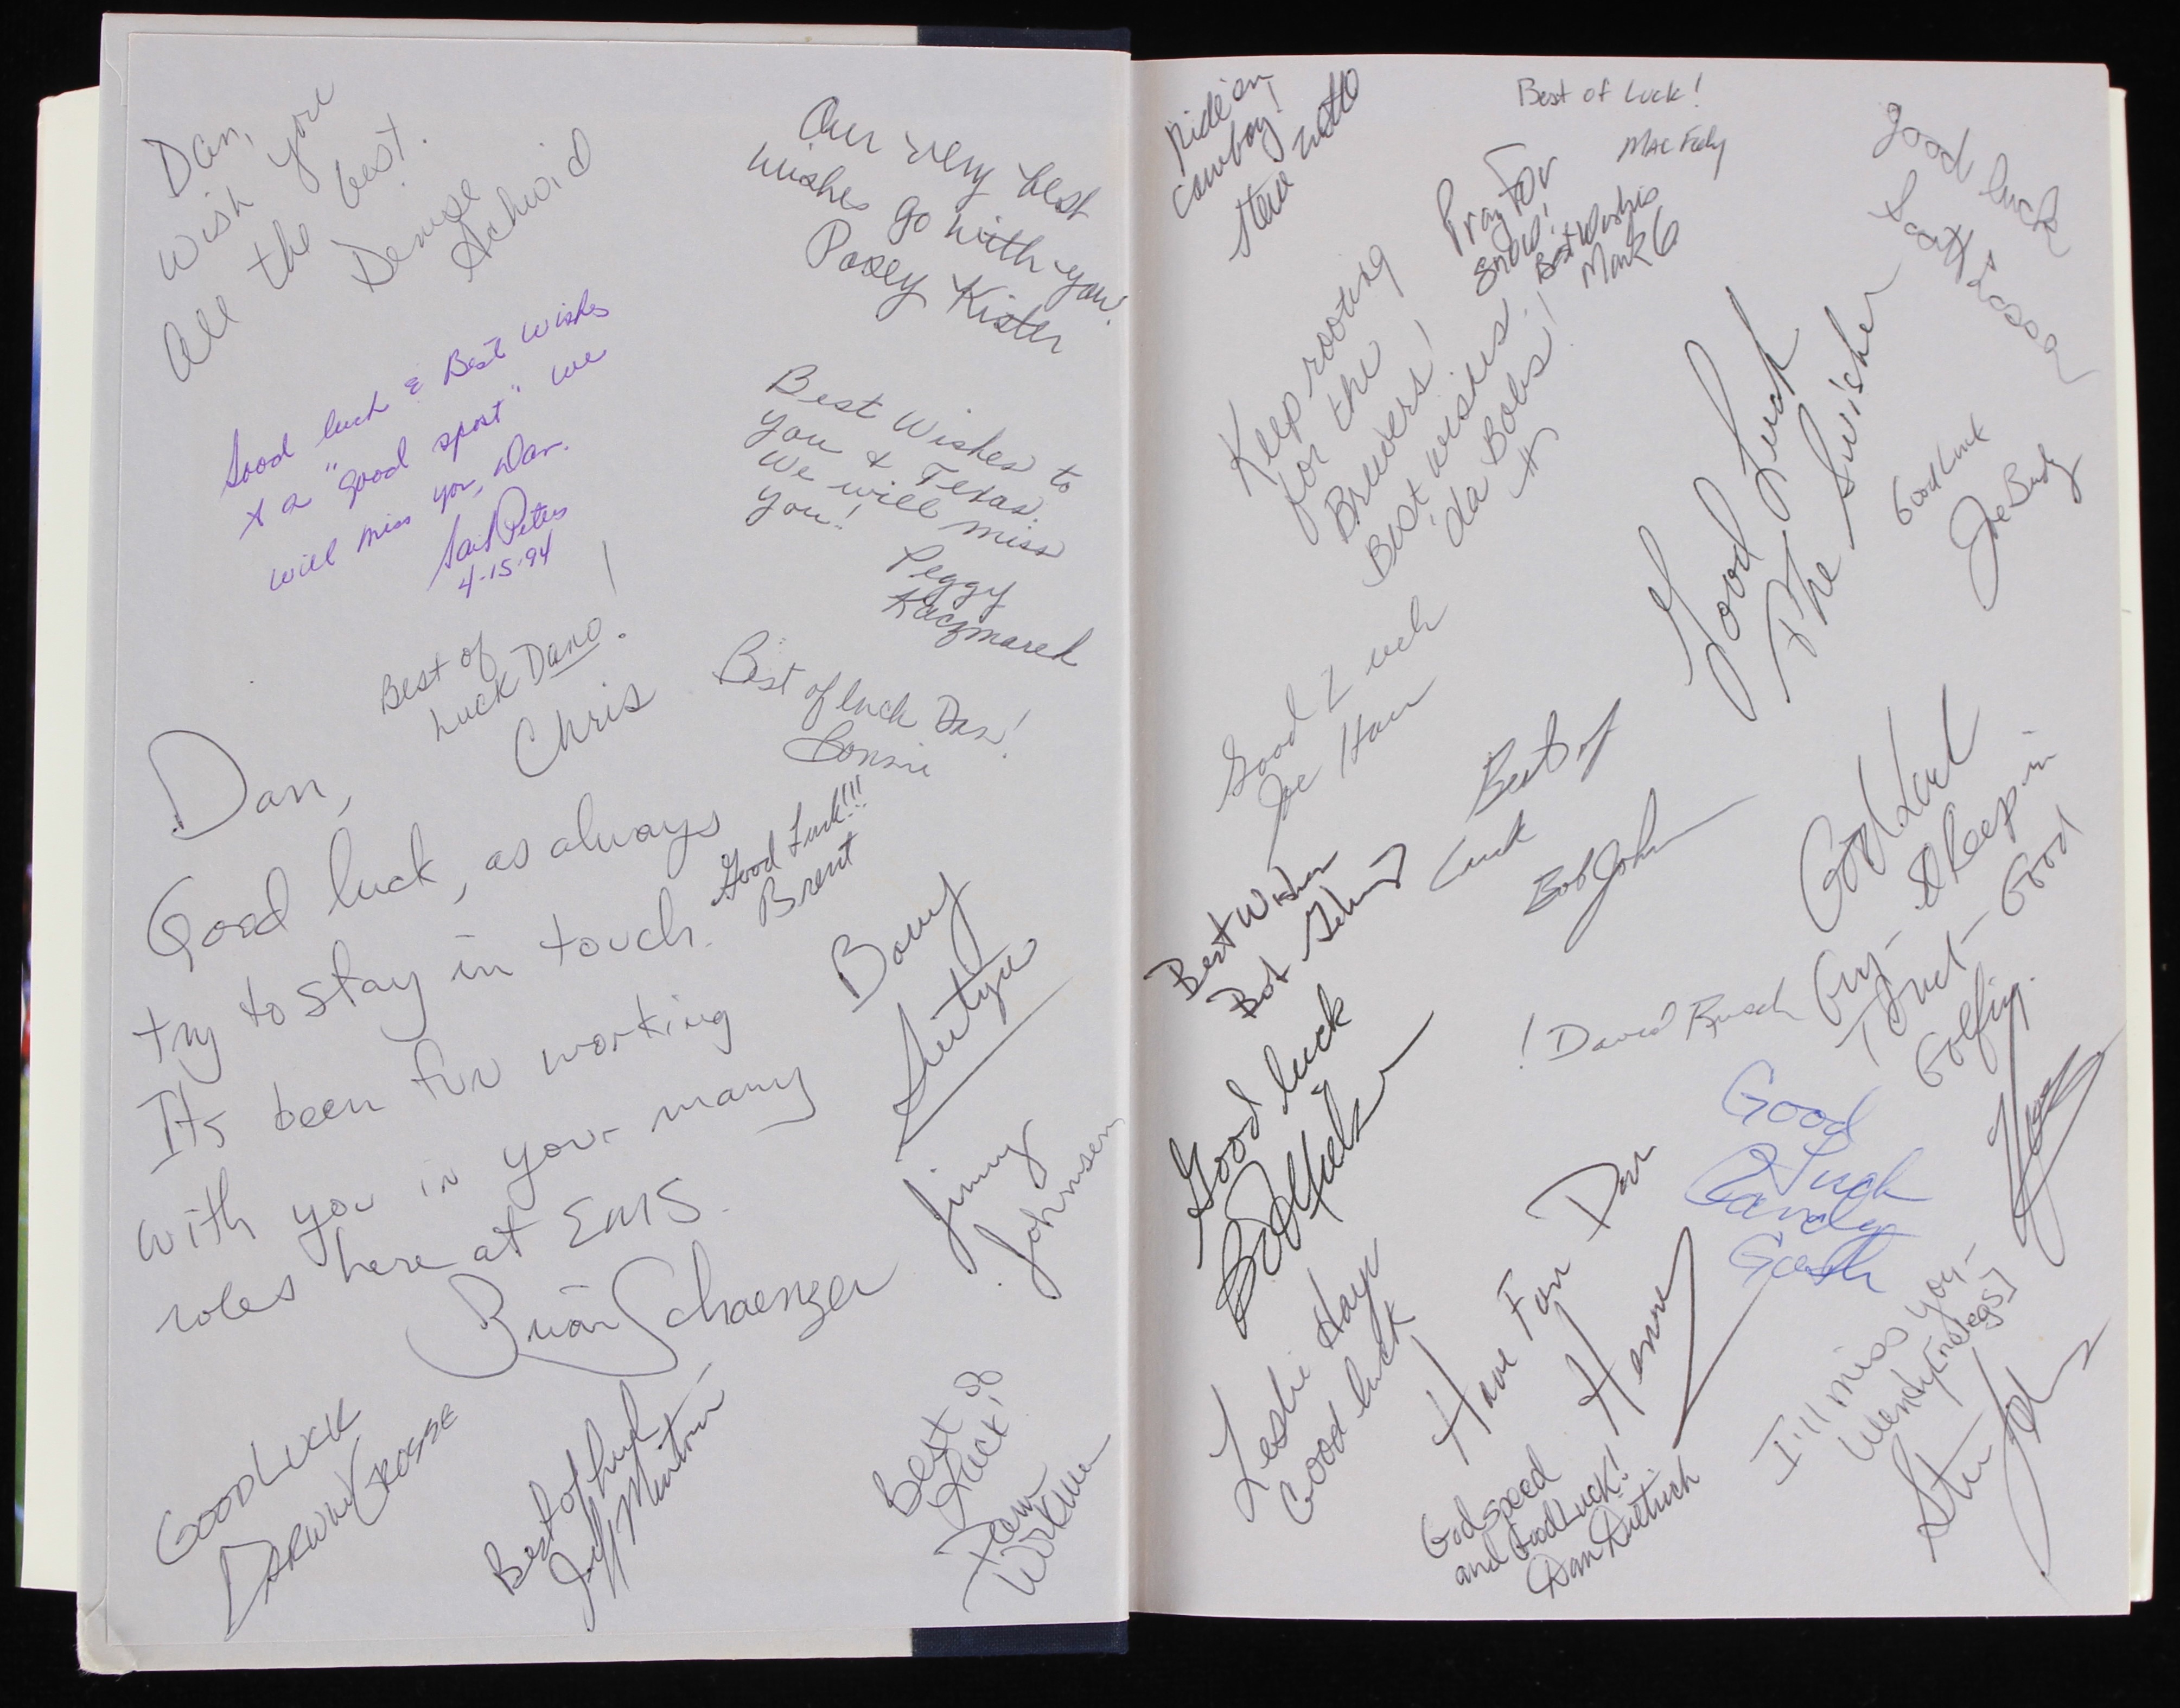 Dan,
Wish you
all the best.
Denise
Schmid
Our very best
wishes go with you.
Posey Kister
Good luck & Best Wishes
to a "good sport" we
will miss you, Dan.
Gail Peters
4-15-94
Best Wishes to
you & Texas.
We will miss
you!
Peggy
Kaczmarek
Best of
Luck Dano!
Chris
Best of luck Dan!
Connie
Dan,
Good luck, as always
try to stay in touch.
Its been fun working
with you in your many
roles here at EMS.
Brian Schaenzer
Good Luck!!!
Brent
Barry
Switzer
Jimmy
Johnsen
GOOD LUCK
DARWIN GROSSE
Best of Luck
Jeff
Best
Luck!
Workman
Ride'em
Cowboy!
Steve
Best of Luck!
Mac
Pray For
Snow!
Best Wishes
Mark G
good luck
Keep rooting
for the
Brewers!
Best wishes
'da Bobs!
Good Luck
The Swisher
Good Luck
Joe
Good Luck
Joe
Best of
Luck
Bob John
Best Wishes
Bob
Good Luck
& Keep in
Touch - Good
Golfing.
! David Busch
Good luck
Bob
Good
Luck
Randy
Leslie Hays
Good luck
Have Fun Dan
I'll miss you -
Wendy [no legs]
Godspeed
and Good Luck!
Dan Dietrich